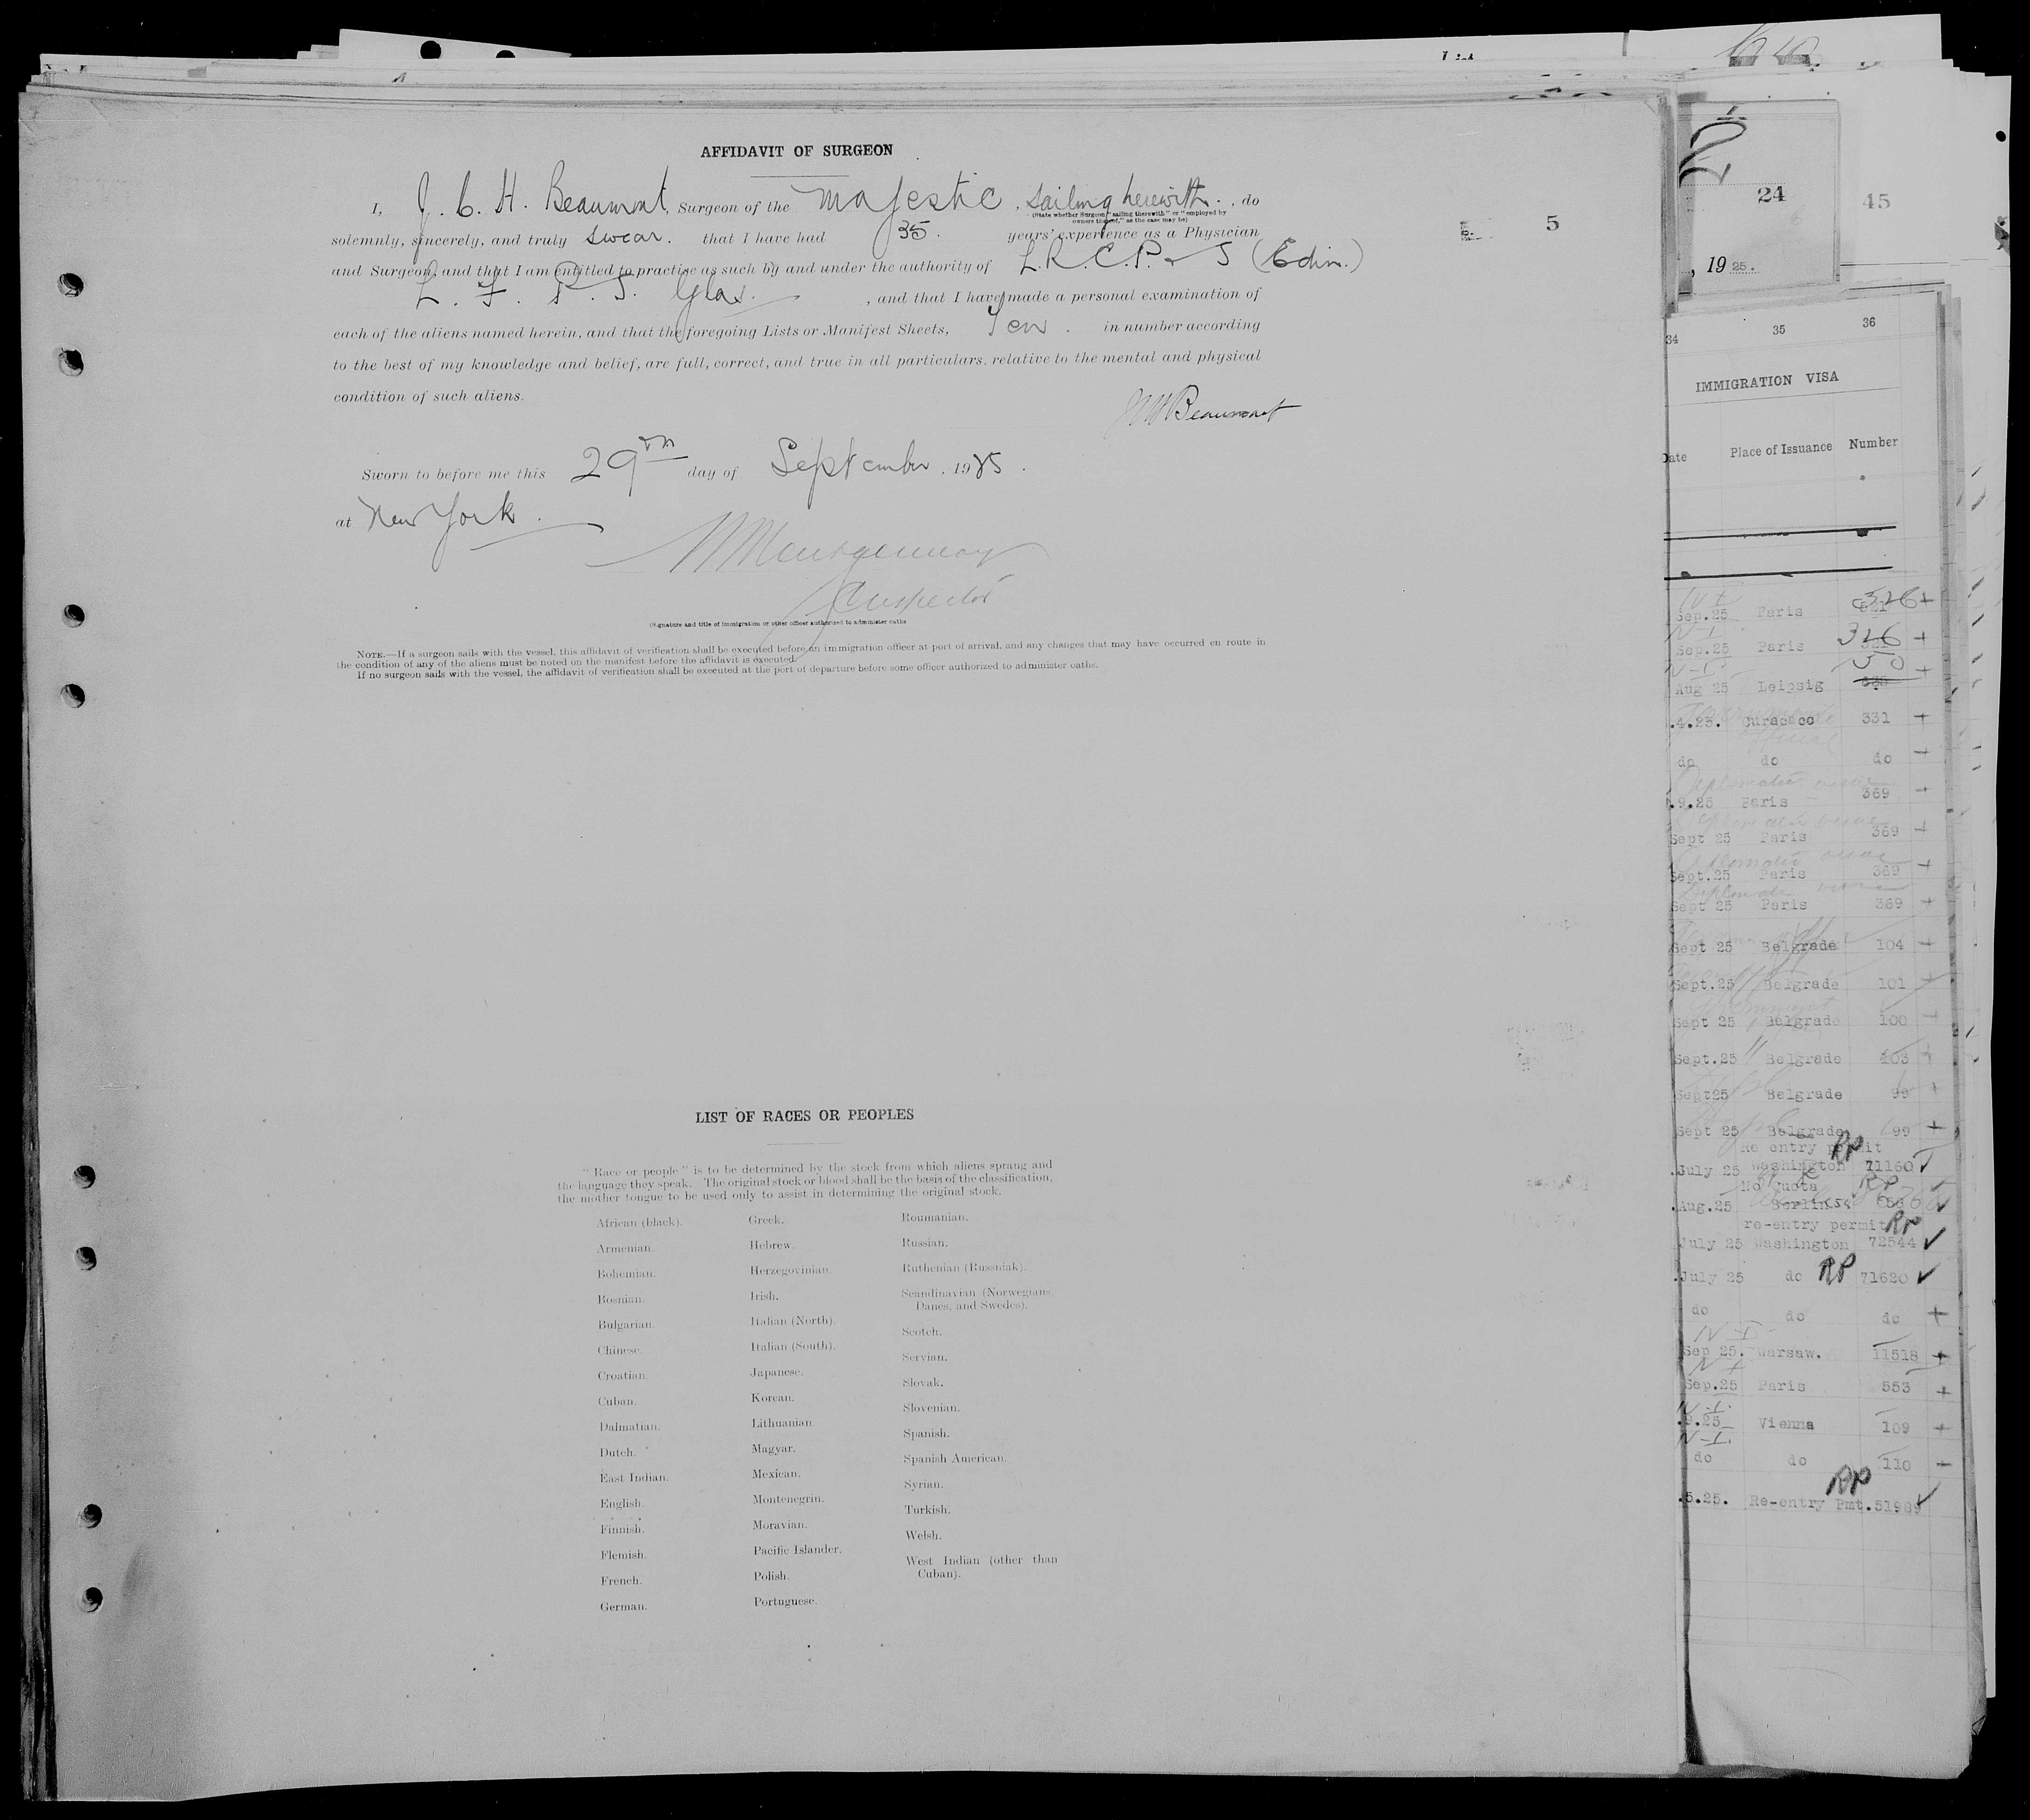 AFFIDAVIT OF SURGEON
I, J. C. H. Beaumont, Surgeon of the Majestic, sailing herewith., do
(State whether Surgeon "sailing therewith" or "employed by
owners thereof," as the case may be)
solemnly, sincerely, and truly swear. that I have had 35. years' experience as a Physician
and Surgeon, and that I am entitled to practise as such by and under the authority of L.R.C.P. & S (Edin.)
L. F. P. S. Glas. , and that I have made a personal examination of
each of the aliens named herein, and that the foregoing Lists or Manifest Sheets, Ten. in number according
to the best of my knowledge and belief, are full, correct, and true in all particulars, relative to the mental and physical
condition of such aliens.
Beaumont
Sworn to before me this 29th day of September, 1925.
at New York.
Montgomery
Inspector
(Signature and title of immigration or other officer authorized to administer oaths
NOTE.—If a surgeon sails with the vessel, this affidavit of verification shall be executed before an immigration officer at port of arrival, and any changes that may have occurred en route in
the condition of any of the aliens must be noted on the manifest before the affidavit is executed.
If no surgeon sails with the vessel, the affidavit of verification shall be executed at the port of departure before some officer authorized to administer oaths.
LIST OF RACES OR PEOPLES
"Race or people" is to be determined by the stock from which aliens sprang and
the language they speak. The original stock or blood shall be the basis of the classification,
the mother tongue to be used only to assist in determining the original stock.
African (black).
Armenian.
Bohemian.
Bosnian.
Bulgarian.
Chinese.
Croatian.
Cuban.
Dalmatian.
Dutch.
East Indian.
English.
Finnish.
Flemish.
French.
German.
Greek.
Hebrew.
Herzegovinian.
Irish.
Italian (North).
Italian (South).
Japanese.
Korean.
Lithuanian.
Magyar.
Mexican.
Montenegrin.
Moravian.
Pacific Islander.
Polish.
Portuguese.
Roumanian.
Russian.
Ruthenian (Russniak).
Scandinavian (Norwegians,
Danes, and Swedes).
Scotch.
Servian.
Slovak.
Slovenian.
Spanish.
Spanish American.
Syrian.
Turkish.
Welsh.
West Indian (other than
Cuban).
5
2
24
45
, 1925.
34 35 36
IMMIGRATION VISA
Date Place of Issuance Number
Sep.25 Paris 326 +
N-I
Sep.25 Paris 326 +
N-I
Aug 25 Leipsig 50 +
.4.25. Curacaco 331 +
do do do +
Diplomatic
.9.25 Paris 369 +
Sept 25 Paris 369 +
Diplomatic
Sept.25 Paris 369 +
Diplomatic
Sept 25 Paris 369 +
Sept 25 Belgrade 104 +
Sept.25 Belgrade 101 +
Sept 25 Belgrade 100
Sept.25 Belgrade 103
Sept25 Belgrade 99
Sept 25 Belgrade 99 +
Re entry permit RP
July 25 Washington 71160
No quota RP
Aug.25 Berlin
re-entry permit RP
July 25 Washington 72544 ✓
July 25 do RP 71620 ✓
do do do +
N-I
Sep 25. Warsaw. 11518 +
N-I
Sep.25 Paris 553 +
N-I.
.9.25 Vienna 109 +
N-I.
do do 110
RP
.5.25. Re-entry Pmt.51989 ✓